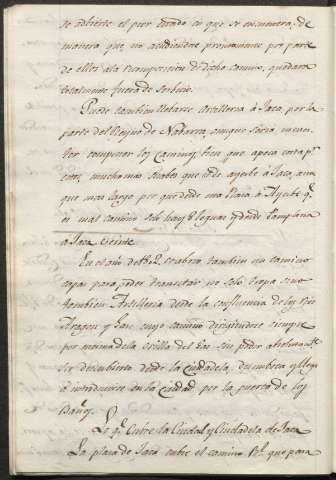 se advierte el peor estado en que se encuentra, de
manera que no acudiendose prontamente por parte
de ellos ala recomposicion de dicho camino, quedara
totalmente fuera de servicio.
Puede tambien llebarse Artilleria à Jaca por la
parte del Reyno de Nabarra, aunque seria necesa
componer los caminos, bien que apoca costa p.r
estar, mucho mas suabes que el de ayerbe à Jaca, aun
que mas largo pues que desde esta Plaza à Ayerbe q.e
es mal camino solo hay 8 leguas y desde Pamplona
à Jaca veinte.
En el año de 1812 se abrio tambien un camino
capaz para poder transitar no solo tropa sino
tambien Artilleria desde la confluencia de los rios
Aragon y Gas cuyo camino dirigiendose siempre
por encima de la orilla del Gas sin poder absolutam.te
ser descubierto desde la Ciudadela, desemboca y llega
à introducirse en la Ciudad por la puerta de los
Baños.
Lo q.e Cubre la Ciudad y Ciudadela de Jaca
La plaza de Jaca cubre el camino R.l que para